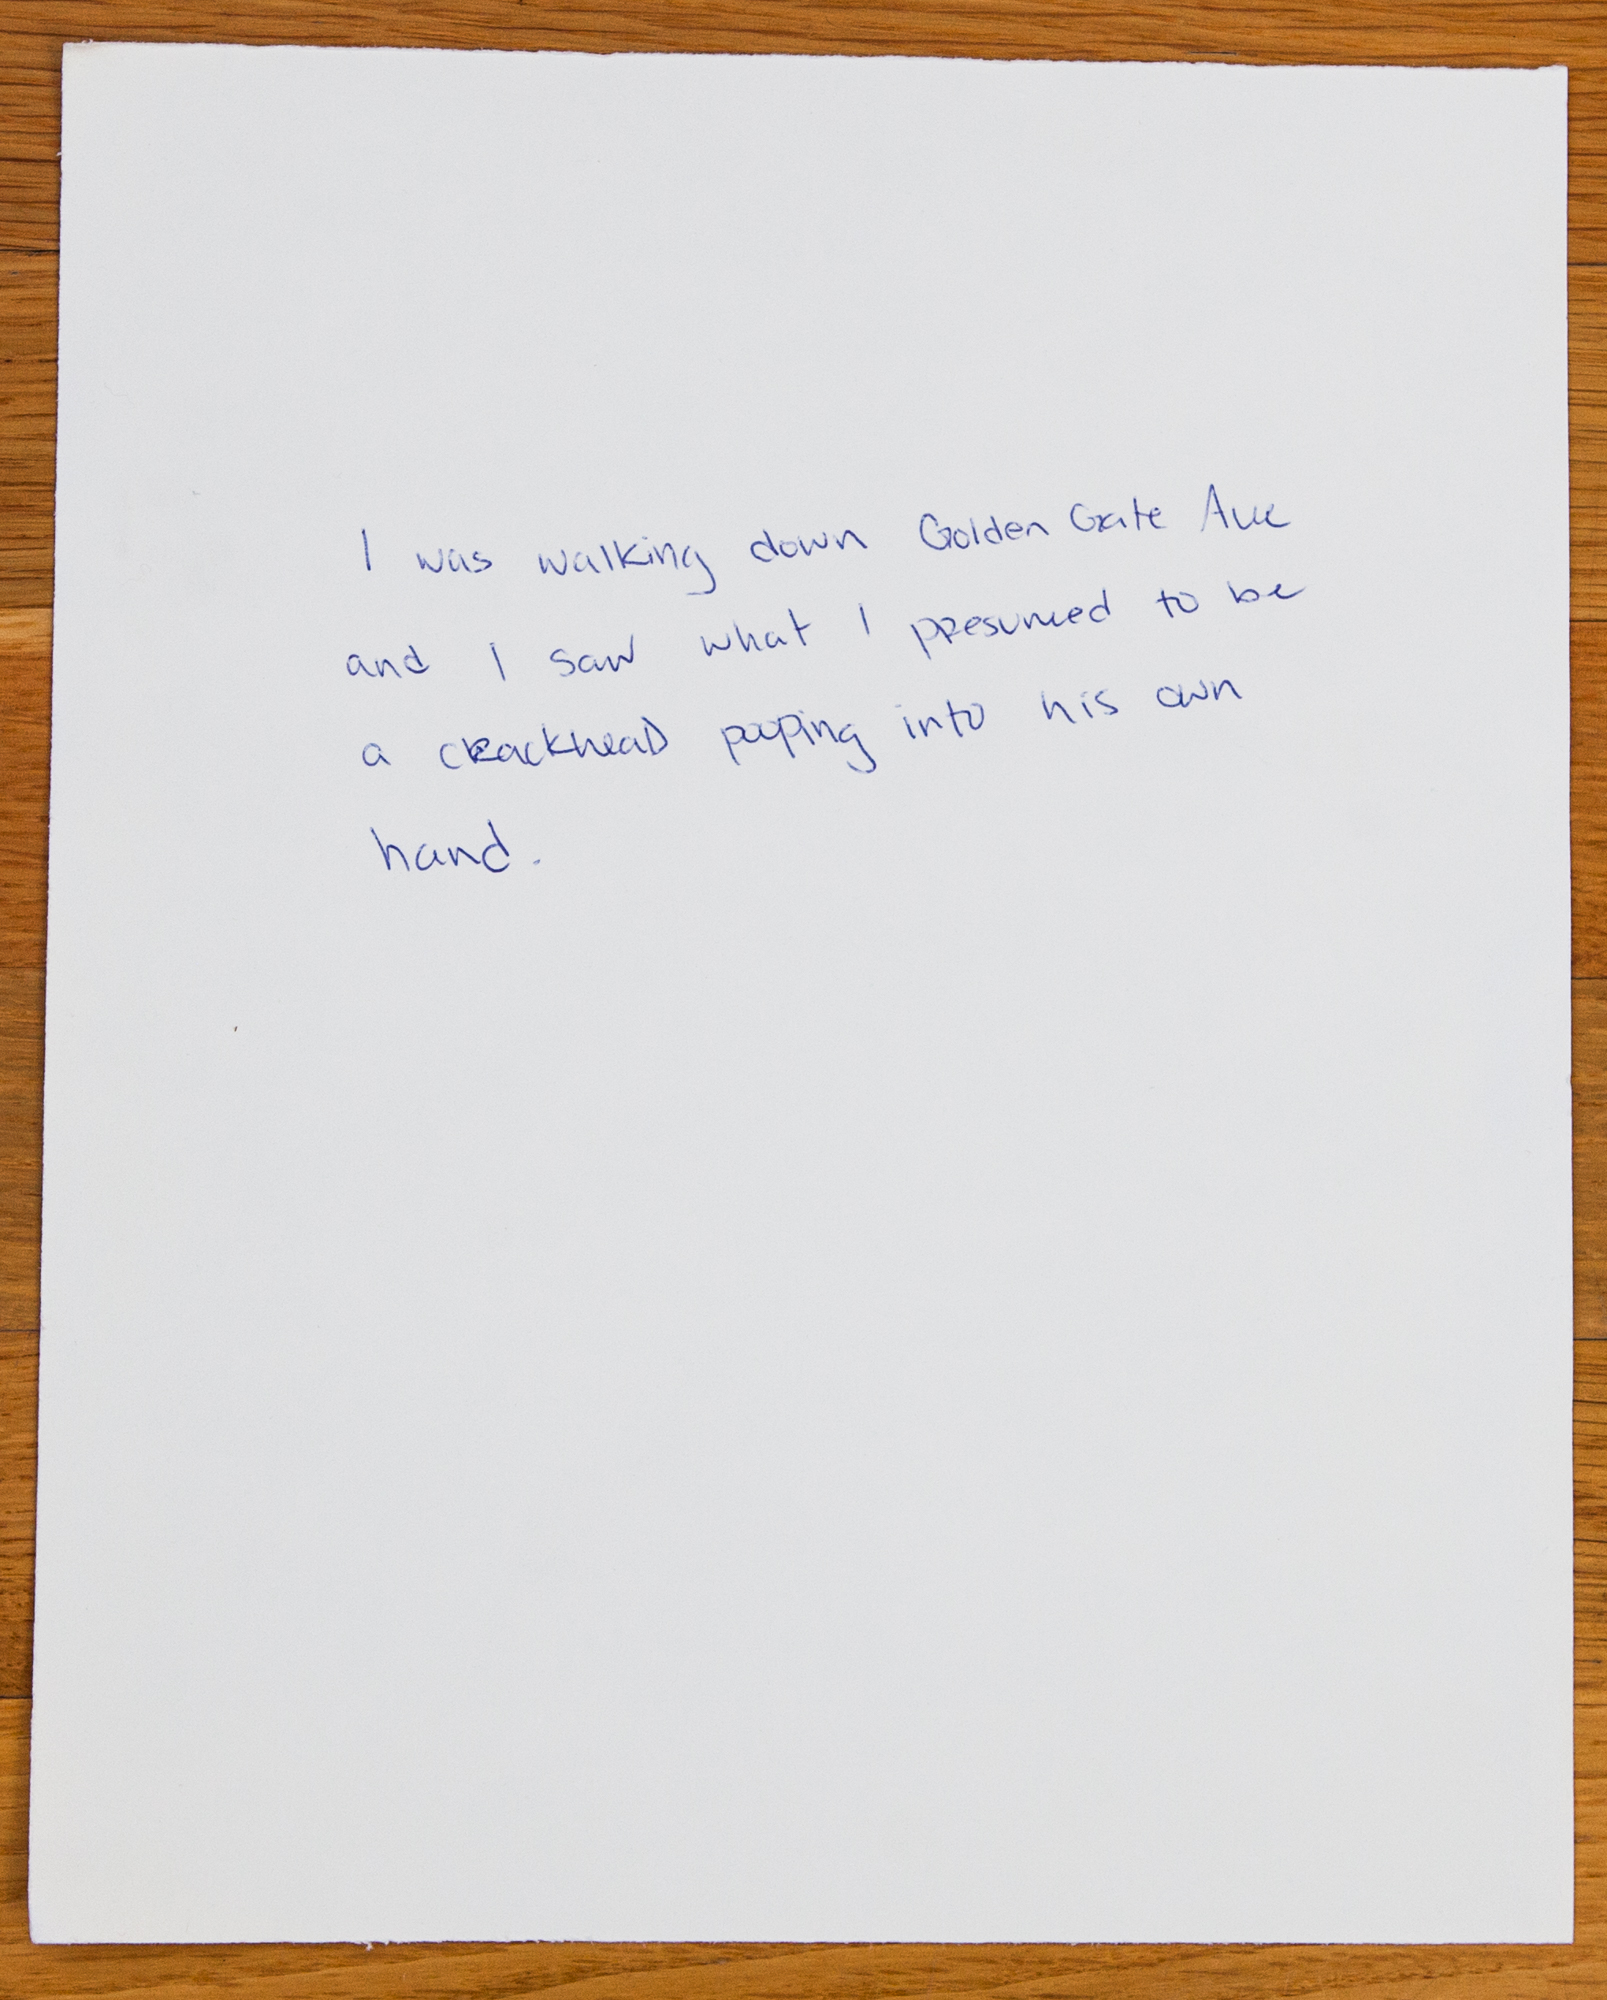 I was walking down Golden Gate Ave
and I saw what I presumed to be
a crackhead pooping into his own
hand.